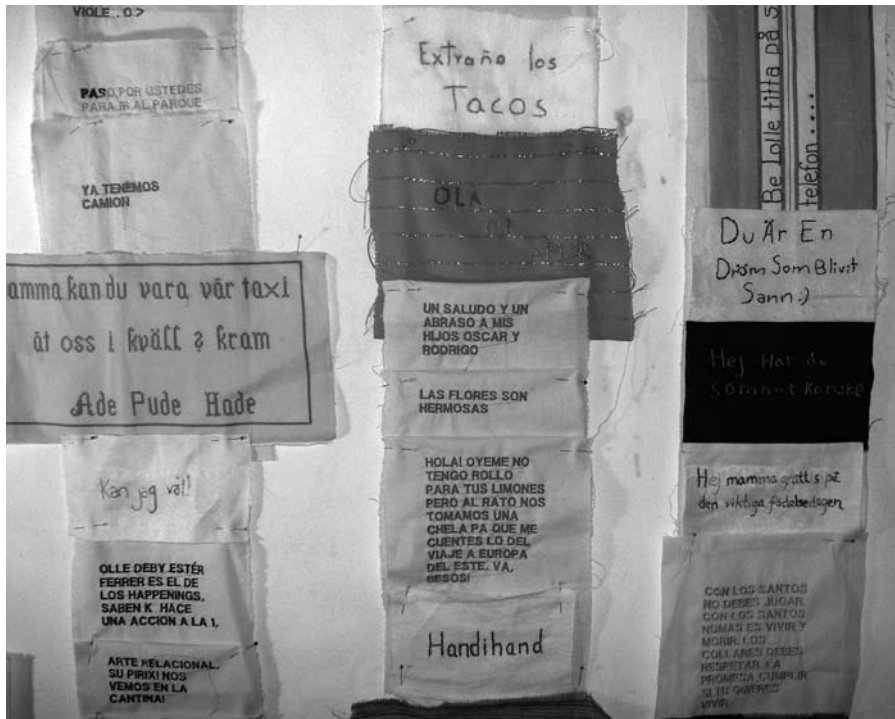 VIOLE . O>
PASO POR USTEDES
PARA IR AL PARQUE
YA TENEMOS
CAMION
amma kan du vara vår taxi
åt oss i kväll ? kram
Ade Pude Hade
Kan jag väl!
OLLE DEBY ESTÉR
FERRER ES EL DE
LOS HAPPENINGS,
SABEN K HACE
UNA ACCION A LA 1,
ARTE RELACIONAL,
SU PIRIX! NOS
VEMOS EN LA
CANTINA!
Extraño los
Tacos
OLA
UN SALUDO Y UN
ABRASO A MIS
HIJOS OSCAR Y
RODRIGO
LAS FLORES SON
HERMOSAS
HOLA! OYEME NO
TENGO ROLLO
PARA TUS LIMONES
PERO AL RATO NOS
TOMAMOS UNA
CHELA PA QUE ME
CUENTES LO DEL
VIAJE A EUROPA
DEL ESTE, VA,
BESOS!
Handihand
Be Lolle titta på s
telefon ....
Du Är En
Dröm Som Blivit
Sann :)
Hej Har du
somnat Kanske
Hej mamma grattis på
den viktiga födabedagen
CON LOS SANTOS
NO DEBES JUGAR,
CON LOS SANTOS
NOMAS ES VIVIR Y
MORIR, LOS
COLLARES DEBES
RESPETAR LA
PROMESA CUMPLIR
SI TU QUIERES
VIVIR